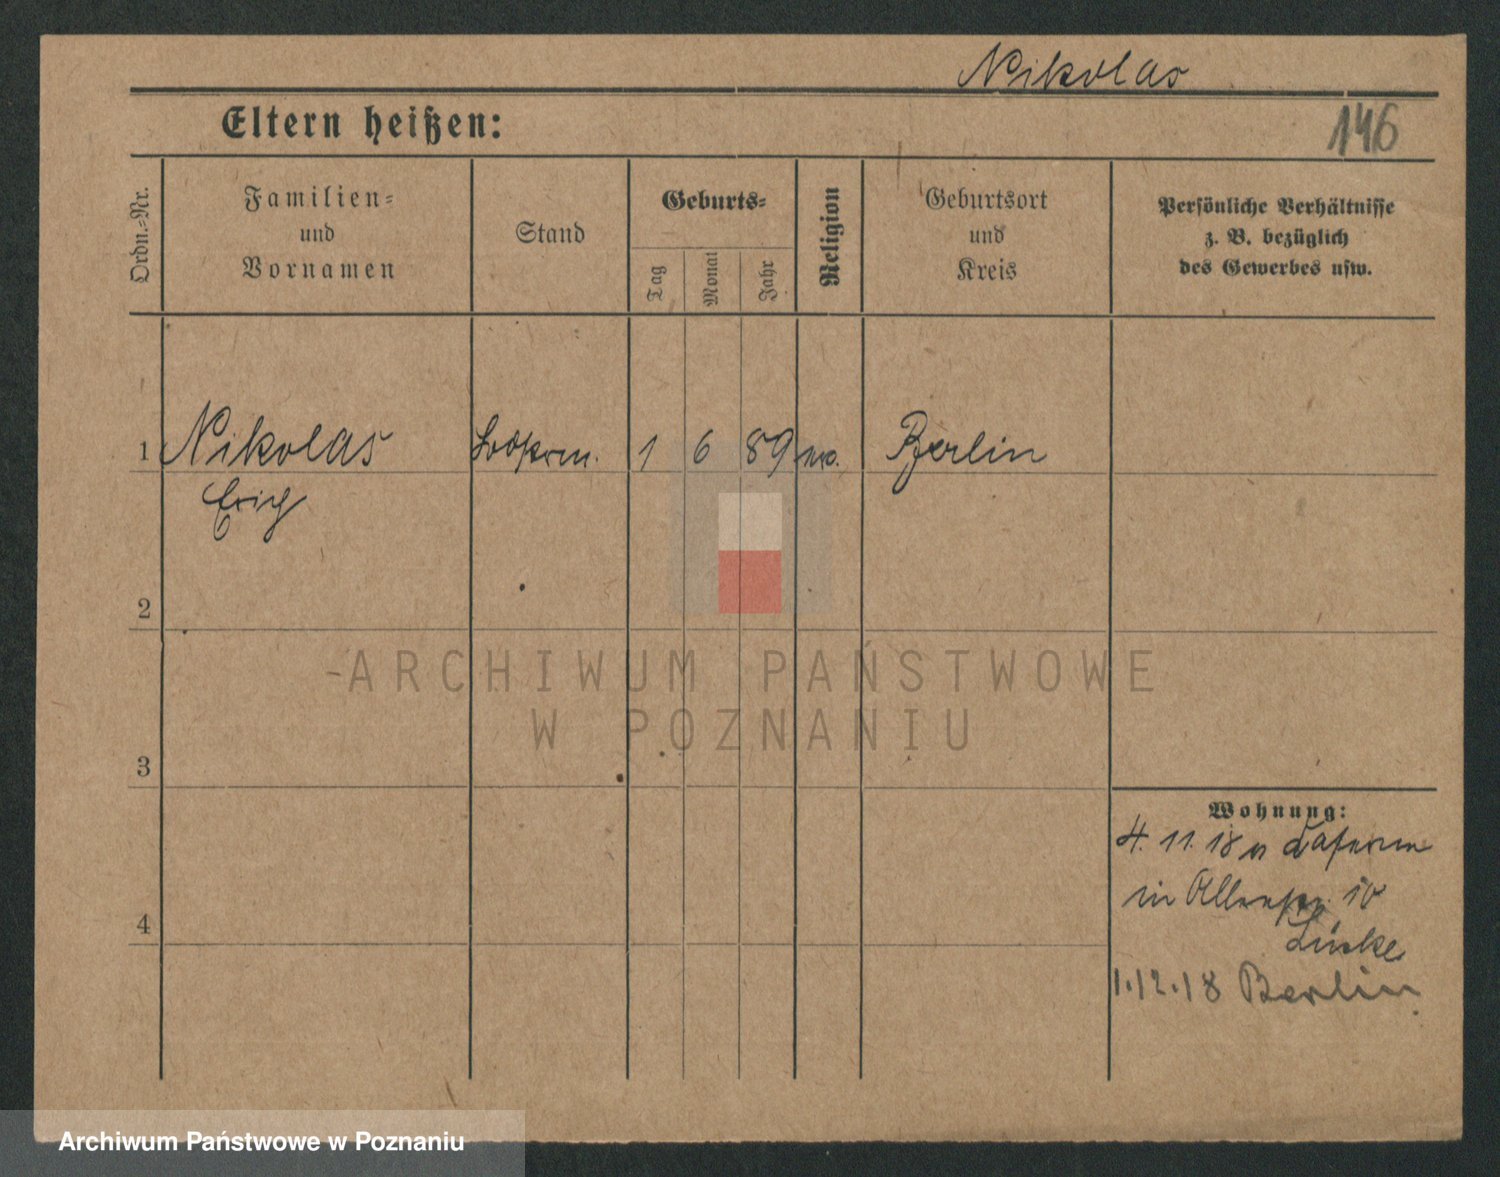 Nikolas
Eltern heißen:
146
Ordn.-Nr.
Familien-
und
Vornamen
Stand
Geburts-
Tag
Monat
Jahr
Religion
Geburtsort
und
Kreis
Persönliche Verhältnisse
z. B. bezüglich
des Gewerbes usw.
1 Nikolas 1 6 89 Berlin
Erich
2
ARCHIWUM PAŃSTWOWE
W POZNANIU
3
Wohnung:
4. 11. 18
in 10
4
1.12.18 Berlin
Archiwum Państwowe w Poznaniu